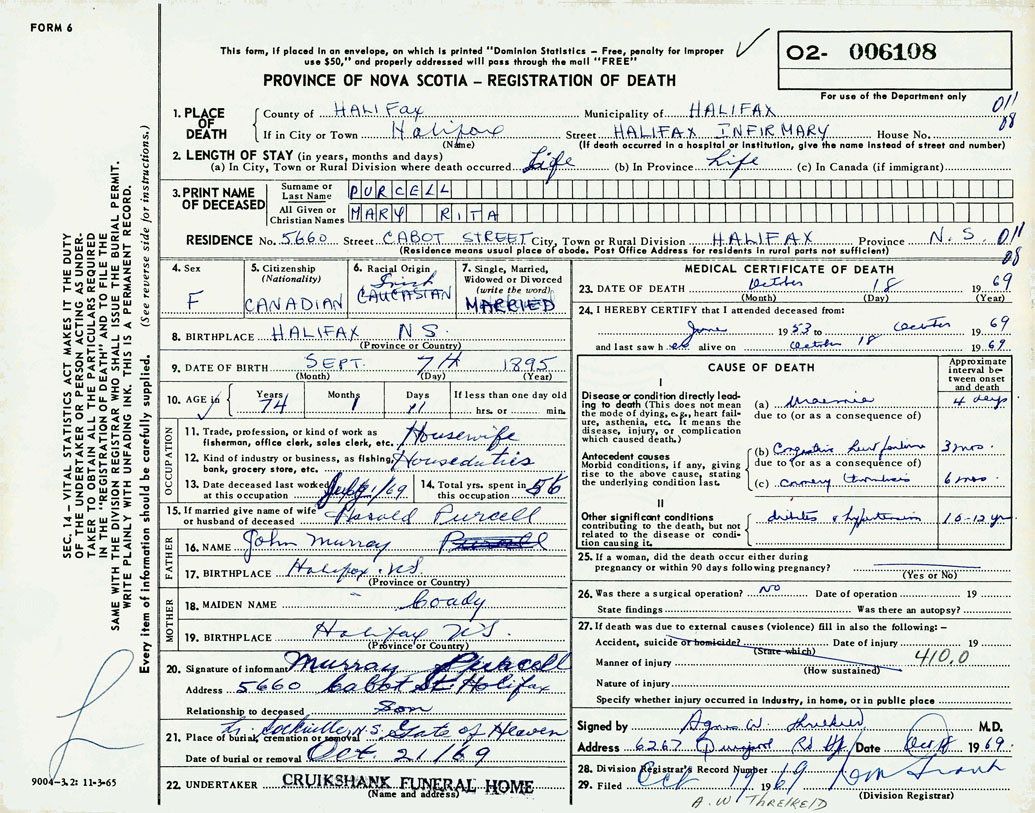 FORM 6
This form, if placed in an envelope, on which is printed "Dominion Statistics – Free, penalty for improper
use $50," and properly addressed will pass through the mail "FREE"
O2- 006108
For use of the Department only
PROVINCE OF NOVA SCOTIA – REGISTRATION OF DEATH
011
08
1. PLACE OF DEATH
County of HALIFAX Municipality of HALIFAX
If in City or Town Halifax Street HALIFAX INFIRMARY House No.
(Name) (If death occurred in a hospital or institution, give the name instead of street and number)
2. LENGTH OF STAY (in years, months and days)
(a) In City, Town or Rural Division where death occurred Life (b) In Province Life (c) In Canada (if immigrant)
3. PRINT NAME OF DECEASED
Surname or Last Name PURCELL
All Given or Christian Names MARY RITA
RESIDENCE No. 5660 Street CABOT STREET City, Town or Rural Division HALIFAX Province N.S. 011
(Residence means usual place of abode. Post Office Address for residents in rural parts not sufficient) 08
4. Sex F
5. Citizenship (Nationality) CANADIAN
6. Racial Origin Irish CAUCASIAN
7. Single, Married, Widowed or Divorced (write the word) MARRIED
8. BIRTHPLACE HALIFAX N S.
(Province or Country)
9. DATE OF BIRTH SEPT. 7TH 1895
(Month) (Day) (Year)
10. AGE in Years 74 Months 1 Days 11 If less than one day old
hrs. or min.
OCCUPATION
11. Trade, profession, or kind of work as fisherman, office clerk, sales clerk, etc. Housewife
12. Kind of industry or business, as fishing, bank, grocery store, etc. Houseduties
13. Date deceased last worked at this occupation July 1/69
14. Total yrs. spent in this occupation 56
15. If married give name of wife or husband of deceased Harold Purcell
FATHER
16. NAME John Murray
17. BIRTHPLACE Halifax N.S.
(Province or Country)
MOTHER
18. MAIDEN NAME Coady
19. BIRTHPLACE Halifax N.S.
(Province or Country)
20. Signature of informant Murray Purcell
Address 5660 Cabot St. Halifax
Relationship to deceased Son
21. Place of burial, cremation or removal Sackville, N.S. Gate of Heaven
Date of burial or removal Oct. 21/69
22. UNDERTAKER CRUIKSHANK FUNERAL HOME
(Name and address)
MEDICAL CERTIFICATE OF DEATH
23. DATE OF DEATH October 18 1969
(Month) (Day) (Year)
24. I HEREBY CERTIFY that I attended deceased from:
June 1953 to October 1969
and last saw her alive on October 18 1969
CAUSE OF DEATH
Approximate interval between onset and death
I
Disease or condition directly leading to death (This does not mean the mode of dying, e.g., heart failure, asthenia, etc. It means the disease, injury, or complication which caused death.)
(a) Uraemia 4 days
due to (or as a consequence of)
Antecedent causes
Morbid conditions, if any, giving rise to the above cause, stating the underlying condition last.
(b) Congestive heart failure 3 mos.
due to (or as a consequence of)
(c) Coronary thrombosis 6 mos.
II
Other significant conditions contributing to the death, but not related to the disease or condition causing it.
diabetes & hypertension 10-12 yrs.
25. If a woman, did the death occur either during
pregnancy or within 90 days following pregnancy?
(Yes or No)
26. Was there a surgical operation? NO Date of operation 19
State findings Was there an autopsy?
27. If death was due to external causes (violence) fill in also the following: –
Accident, suicide or homicide? Date of injury 19
(State which) 410.0
Manner of injury
(How sustained)
Nature of injury
Specify whether injury occurred in industry, in home, or in public place
Signed by Agnes W. Threlkeld M.D.
Address 6267 Quinpool Rd Hfx Date Oct 18 1969.
28. Division Registrar's Record Number
29. Filed Oct 19 1969
(Division Registrar)
A. W THRELKELD
SEC. 14 – VITAL STATISTICS ACT MAKES IT THE DUTY
OF THE UNDERTAKER OR PERSON ACTING AS UNDER-
TAKER TO OBTAIN ALL THE PARTICULARS REQUIRED
IN THE "REGISTRATION OF DEATH" AND TO FILE THE
SAME WITH THE DIVISION REGISTRAR WHO SHALL ISSUE THE BURIAL PERMIT.
WRITE PLAINLY WITH UNFADING INK. THIS IS A PERMANENT RECORD.
Every item of information should be carefully supplied. (See reverse side for instructions.)
9004–3.2: 11-3-65